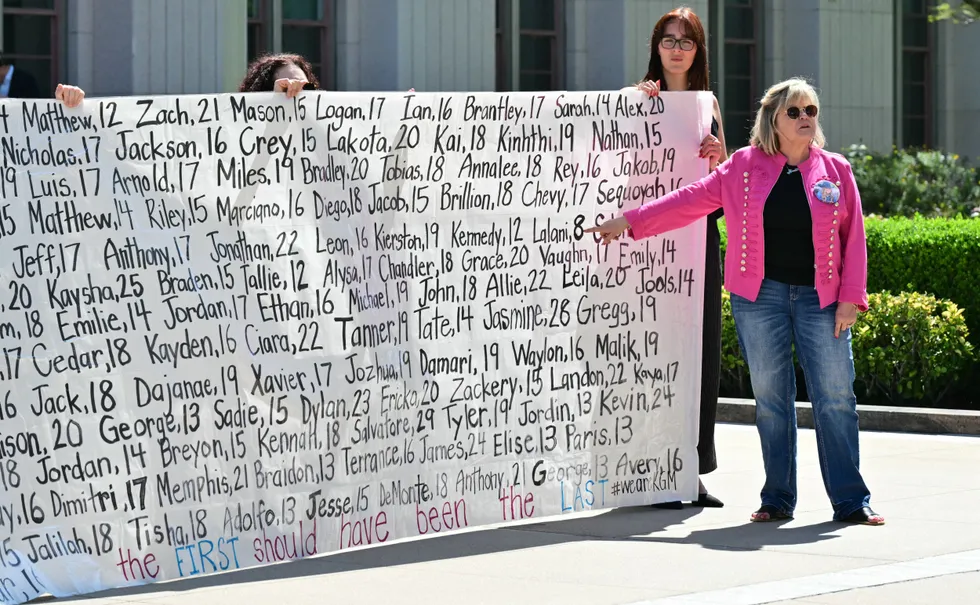 4 Matthew, 12 Zach, 21 Mason, 15 Logan, 17 Ian, 16 Brantley, 17 Sarah, 14 Alex, 20
Nicholas, 17 Jackson, 16 Crey, 15 Lakota, 20 Kai, 18 Kinhthi, 19 Nathan, 15
19 Luis, 17 Arnold, 17 Miles, 19 Bradley, 20 Tobias, 18 Annalee, 18 Rey, 16 Jakob, 19
15 Matthew, 14 Riley, 15 Marciano, 16 Diego, 18 Jacob, 15 Brillion, 18 Chevy, 17 Sequoyah, 16
Jeff, 17 Anthony, 17 Jonathan, 22 Leon, 16 Kierston, 19 Kennedy, 12 Lalani, 8
20 Kaysha, 25 Braden, 15 Tallie, 12 Alysa, 17 Chandler, 18 Grace, 20 Vaughn, 17 Emily, 14
18 Emilie, 14 Jordan, 17 Ethan, 16 Michael, 19 John, 18 Allie, 22 Leila, 20 Jools, 14
17 Cedar, 18 Kayden, 16 Ciara, 22 Tanner, 19 Tate, 14 Jasmine, 28 Gregg, 19
16 Jack, 18 Dajanae, 19 Xavier, 17 Jozhua, 19 Damari, 19 Waylon, 16 Malik, 19
20 George, 13 Sadie, 15 Dylan, 23 Ericka, 20 Zackery, 15 Landon, 22 Kaya, 17
18 Jordan, 14 Breyon, 15 Kennah, 18 Salvatore, 29 Tyler, 19 Jordin, 13 Kevin, 24
16 Dimitri, 17 Memphis, 21 Braidon, 13 Terrance, 16 James, 24 Elise, 13 Paris, 13
15 Jalilah, 18 Tisha, 18 Adolfo, 13 Jesse, 15 DeMonte, 18 Anthony, 21 George, 13 Avery, 16
16 the FIRST should have been the LAST #weareKGM